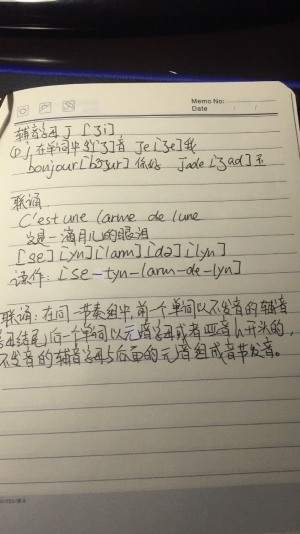 Memo No:
Date / /
辅音字母 J [ʒi]
① j 在单词中发[ʒ]音 Je [ʒe]我
bonjour[bɔ̃ʒur] 你好 Jade [ʒad] 玉
联诵
C'est une larme de lune
这是一滴月儿的眼泪
[se] [yn] [larm] [də] [lyn]
读作: [se-tyn-larm-de-lyn]
联诵: 在同一节奏组中,前一个单词以不发音的辅音
字母结尾,后一个单词以元音字母或者哑音h开头的,
不发音的辅音字母与后面的元音组成音节发音。